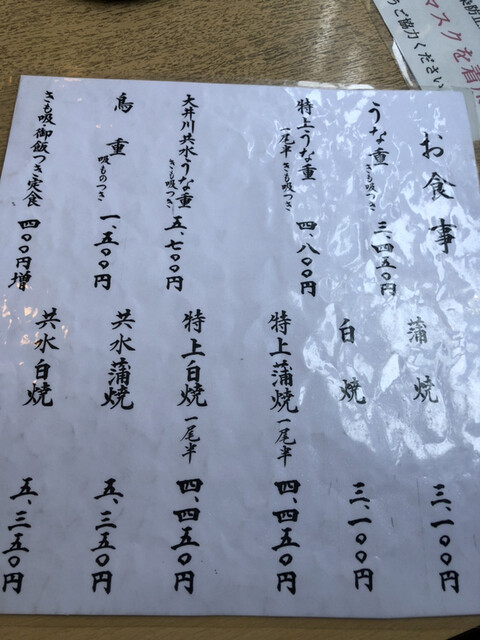 お食事
うな重 きも吸つき 三、四五〇円
特上うな重 一尾半 きも吸つき 四、八〇〇円
大井川共水うな重 きも吸つき 五、七〇〇円
鳥重 吸ものつき 一、五〇〇円
きも吸御飯つき定食 四〇〇円増
蒲焼 三、一〇〇円
白焼 三、一〇〇円
特上蒲焼 一尾半 四、四五〇円
特上白焼 一尾半 四、四五〇円
共水蒲焼 五、三五〇円
共水白焼 五、三五〇円
マスクを着
ご協力ください